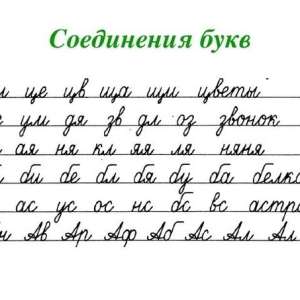 Соединения букв
ще цв ща щи цветы
ум дя зв дл оз звонок
ая ня кл яя ля няня
би бе бл бя бу ба
ас ус ос нс бс вс
Ав Ар Аф Аб Ас Ал Ал